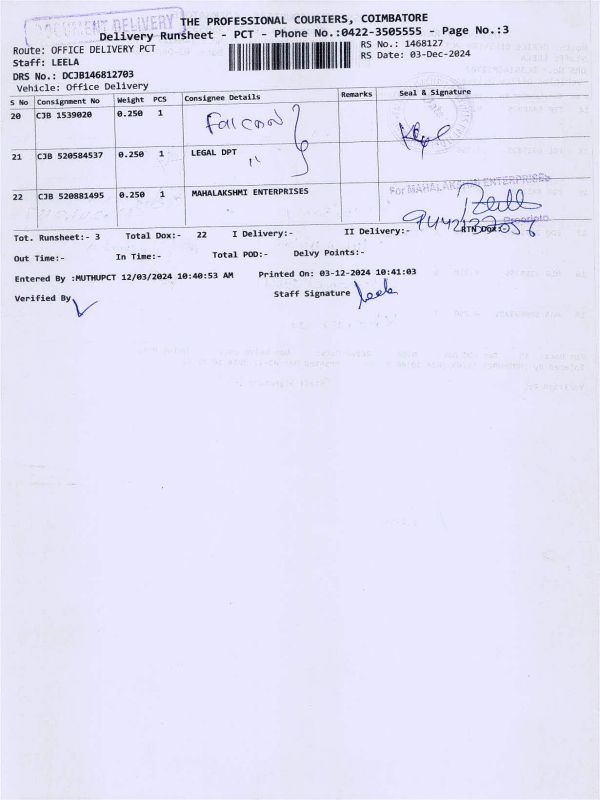 DOCUMENT DELIVERY
THE PROFESSIONAL COURIERS, COIMBATORE
Delivery RunSheet - PCT - Phone No.:0422-3505555 - Page No.:3
Route: OFFICE DELIVERY PCT
RS No.: 1468127
Staff: LEELA
RS Date: 03-Dec-2024
DRS No.: DCJB146812703
Vehicle: Office Delivery
S No Consignment No Weight PCS Consignee Details Remarks Seal & Signature
20 CJB 1539020 0.250 1 Falcon
21 CJB 520584537 0.250 1 LEGAL DPT
"
22 CJB 520881495 0.250 1 MAHALAKSHMI ENTERPRISES
For MAHALAKSHMI ENTERPRISES
Tot. Runsheet:- 3 Total Dox:- 22 I Delivery:- II Delivery:- RTN Dox:-
Out Time:- In Time:- Total POD:- Delvy Points:-
Entered By :MUTHUPCT 12/03/2024 10:40:53 AM Printed On: 03-12-2024 10:41:03
Verified By
Staff Signature Leela